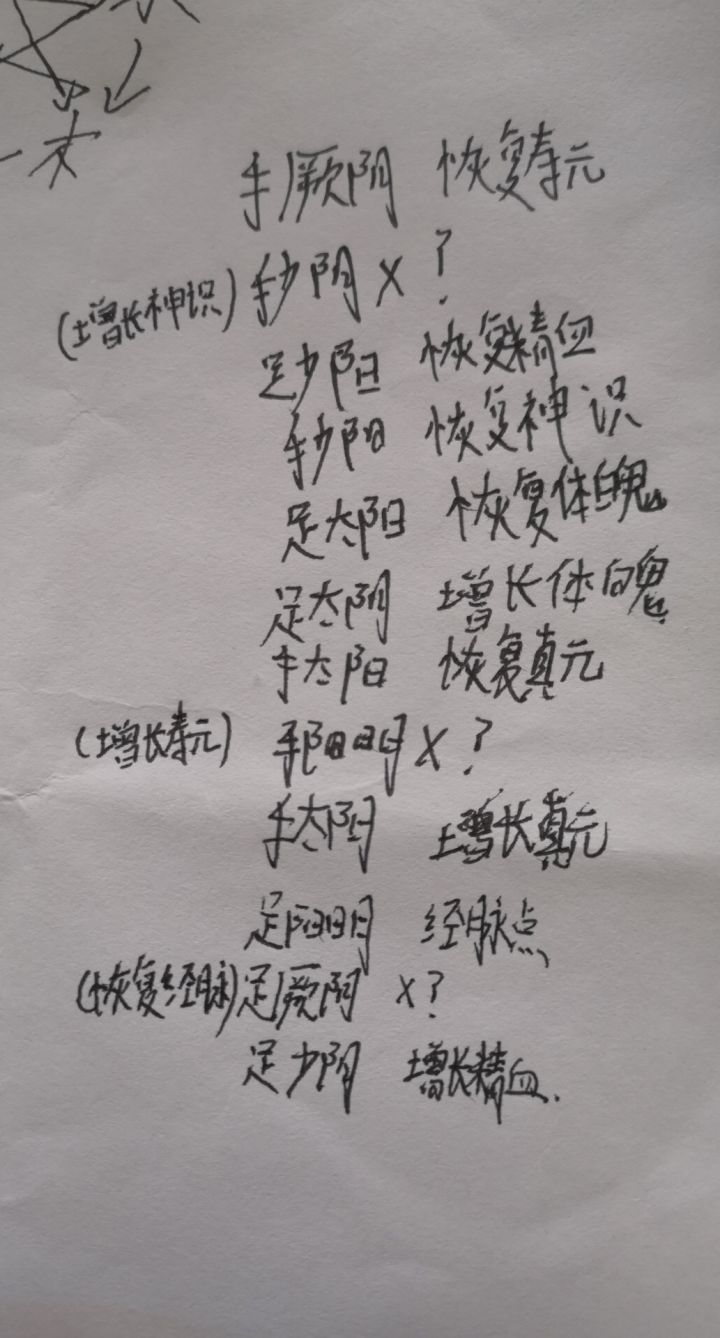 火
手厥阴 恢复寿元
(增长神识) 手少阴 X ?
足少阳 恢复精血
手少阳 恢复神识
足太阳 恢复体魄
足太阴 增长体魄
手太阳 恢复真元
(增长寿元) 手阳明 X ?
手太阴 增长真元
足阳明 经脉点
(恢复经脉) 足厥阴 X ?
足少阴 增长精血.